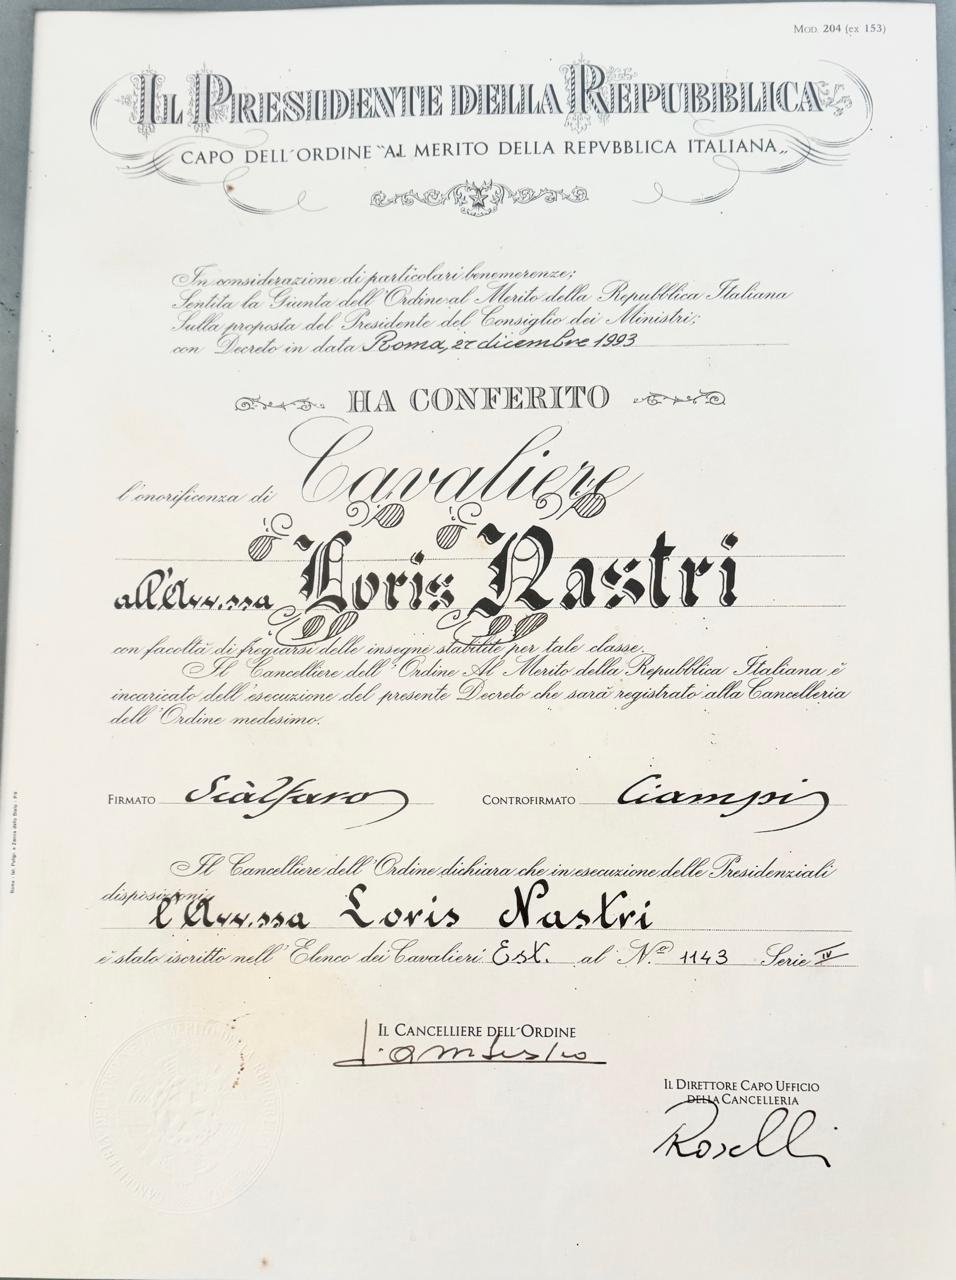 MOD. 204 (ex 153)
IL PRESIDENTE DELLA REPUBBLICA
CAPO DELL'ORDINE "AL MERITO DELLA REPVBBLICA ITALIANA„
In considerazione di particolari benemerenze;
Sentita la Giunta dell'Ordine al Merito della Repubblica Italiana
Sulla proposta del Presidente del Consiglio dei Ministri;
con Decreto in data Roma, 27 dicembre 1993
HA CONFERITO
l'onorificenza di Cavaliere
all' Loris Nastri
con facoltà di fregiarsi delle insegne stabilite per tale classe.
Il Cancelliere dell'Ordine Al Merito della Repubblica Italiana è
incaricato dell'esecuzione del presente Decreto che sarà registrato alla Cancelleria
dell'Ordine medesimo.
FIRMATO Scàlfaro CONTROFIRMATO Ciampi
Il Cancelliere dell'Ordine dichiara che in esecuzione delle Presidenziali
disposizioni
Loris Nastri
è stato iscritto nell'Elenco dei Cavalieri Est. al N.º 1143 Serie IV
IL CANCELLIERE DELL'ORDINE
IL DIRETTORE CAPO UFFICIO
DELLA CANCELLERIA
Roselli